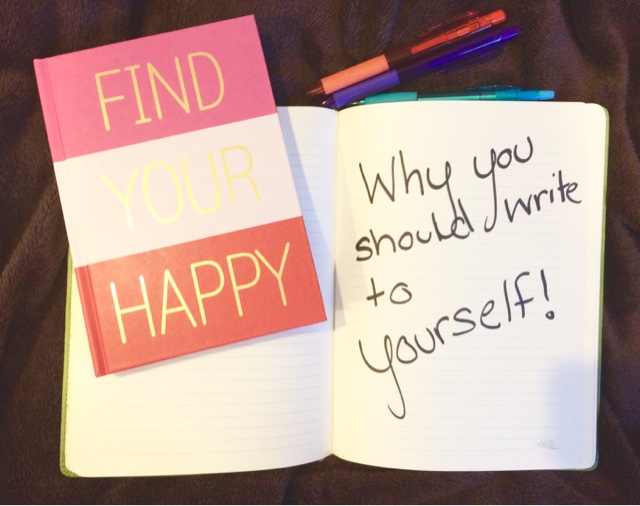 FIND
YOUR
HAPPY
Why you
should write
to
yourself!